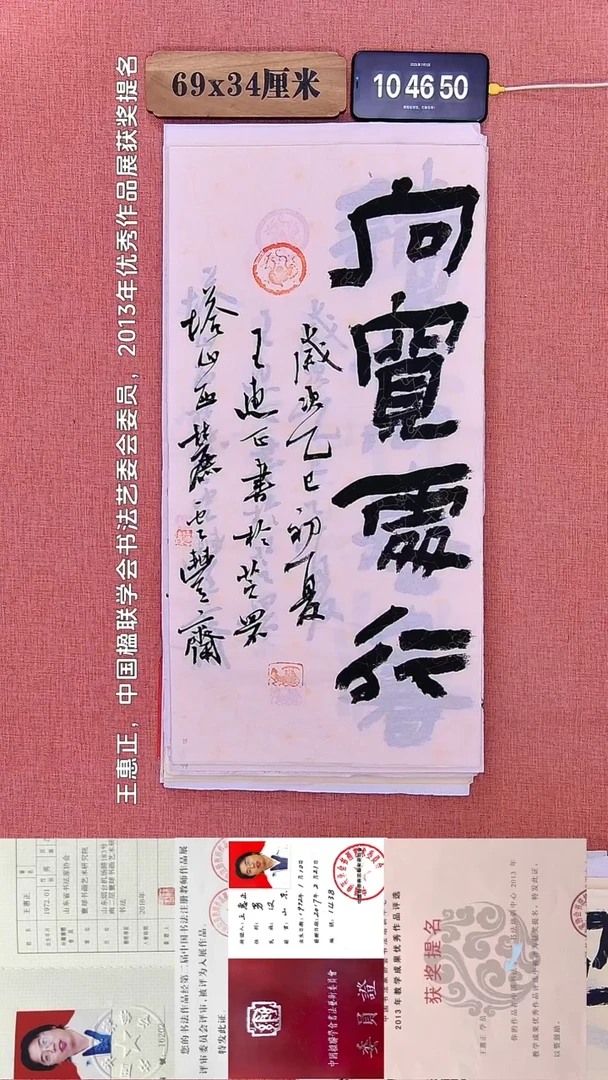 69x34厘米
10 46 50
王惠正，中国楹联学会书法艺委会委员，2013年优秀作品展获奖提名
向寬處行
歲次乙巳初夏
王惠正書於芝罘
塔山西麓雲豐齋
王惠正
1972.01
山东省书法家协会
书法
2016年
您的书法作品经第二届中国书法注册教师作品展
评审委员会评审，被评为入展作品。
特发此证
王惠正
男 汉
山东
1238
中国楹联学会书法艺术委员会
委員證
2013年教学成果优秀作品评选
获奖提名
王惠正 学员
以资鼓励。